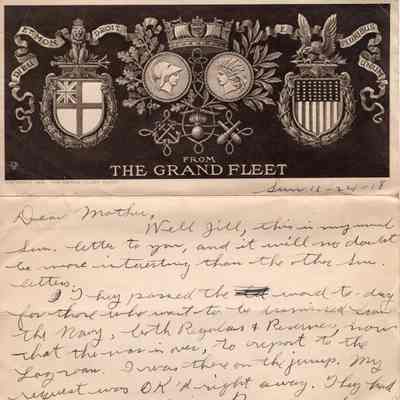 DIEU ET MON DROIT
E PLURIBUS UNUM
FROM
THE GRAND FLEET
Sun. 11-24-18
Dear Mother,
Well Jill, this is my usual
Sun. letter to you, and it will no doubt
be more interesting than the other Sun.
letters.
They passed the word to-day
for those who want to be dismissed from
the Navy, both Regulars & Reserves, now
that the war is over, to report to the
Log room. I was there on the jump. My
request was OK'd right away. They had